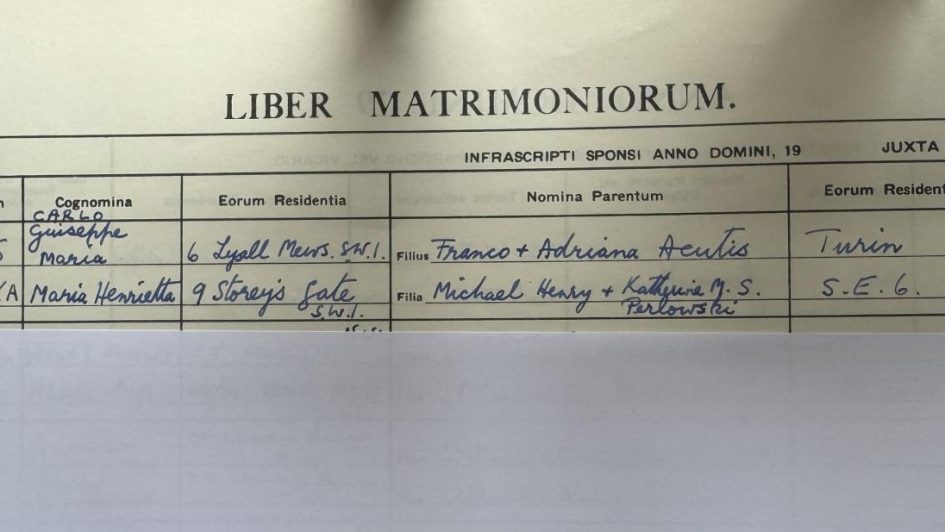 LIBER MATRIMONIORUM.
INFRASCRIPTI SPONSI ANNO DOMINI, 19 JUXTA
Cognomina Eorum Residentia Nomina Parentum Eorum Resident
CARLO
Guiseppe
Maria 6 Lyall Mews. S.W.1. Filius Franco + Adriana Acutis Turin
A Maria Henrietta 9 Storey's Gate Filia Michael Henry + M. S. S.E.6.
S.W.1. Perlowski